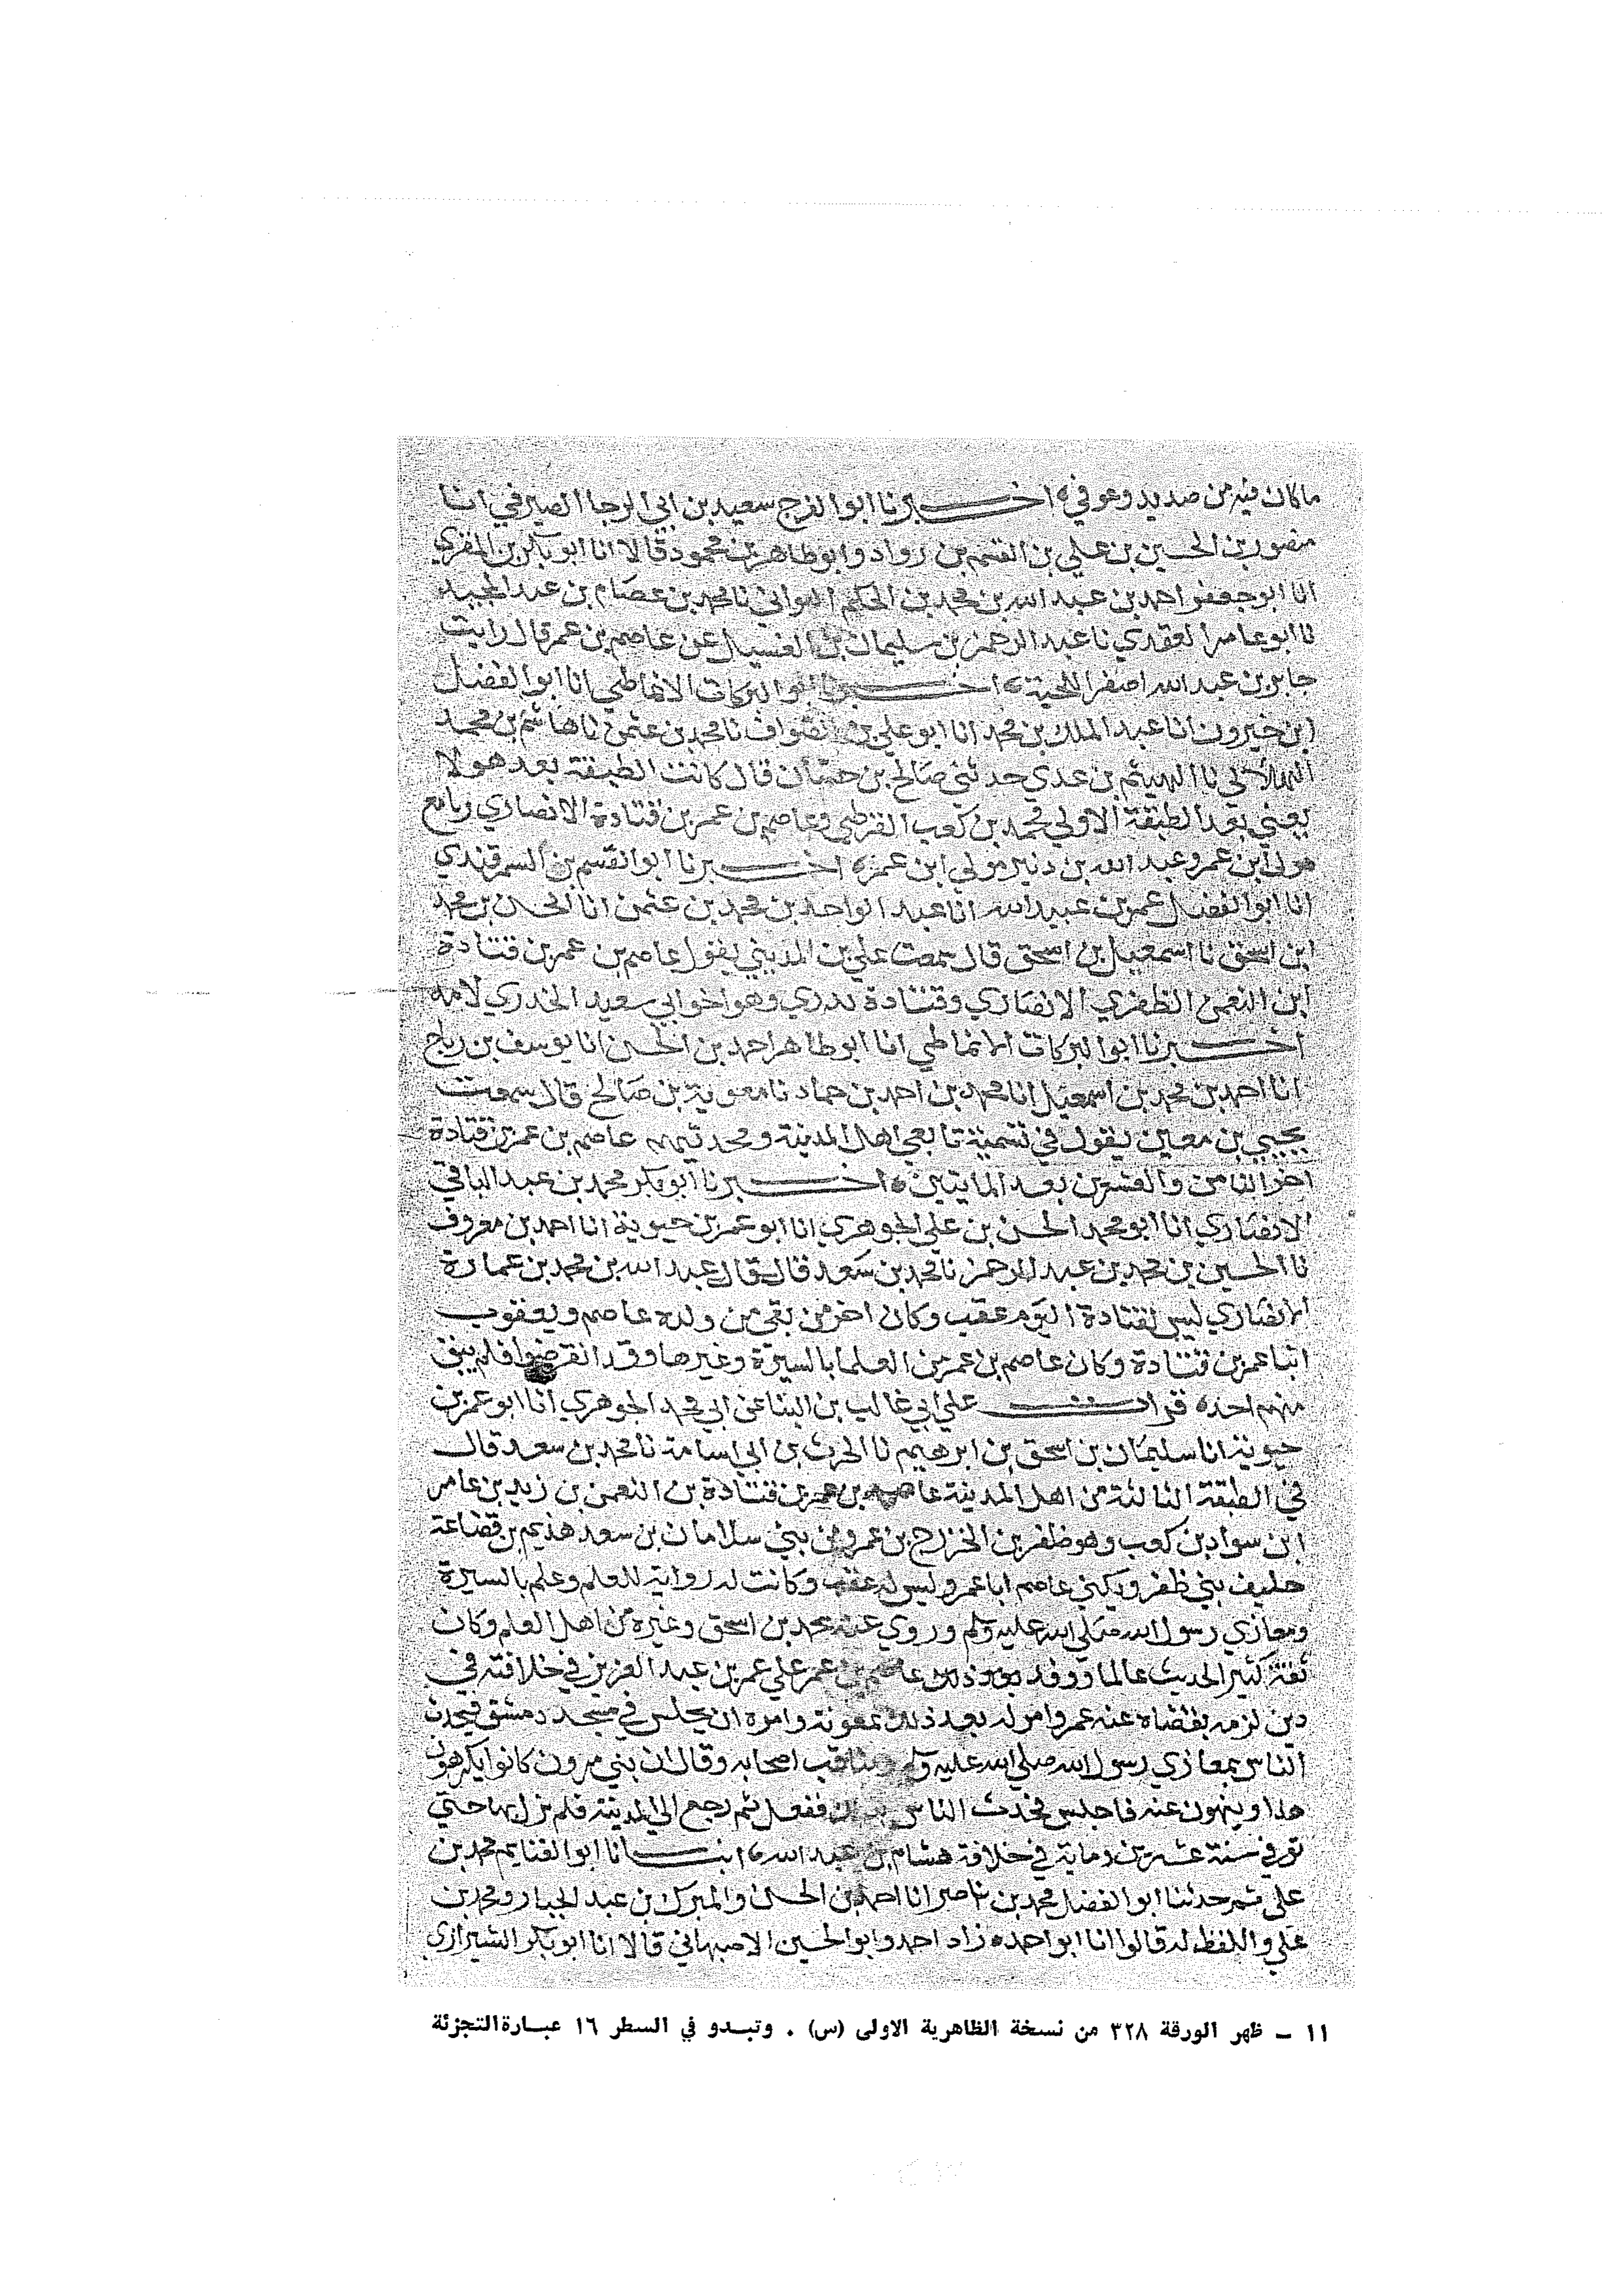 ما كان فيه من صديد وعوفي ه اخبرنا ابو الفرج سعيد بن ابي الرجا الصيرفي انا
منصور بن الحسين بن علي بن القسم بن رواد وابو طاهر بن محمود قالا انا ابو بكر بن المقري
انا ابو جعفر احمد بن عبد الله بن محمد بن الحكم نا محمد بن عصام بن عبد المجيد
نا ابو عامر العقدي نا عبد الرحمن بن سليمان بن الغسيل عن عاصم بن عمر قال رايت
جابر بن عبد الله اصفر اللحية ه اخبرنا ابو البركات الانماطي انا ابو الفضل
ابن خيرون انا عبد الملك بن محمد انا ابو علي بن الصواف نا محمد بن عثمن نا هاشم بن محمد
الهلالي نا الهيثم بن عدي حدثني صالح بن حسان قال كانت الطبقة بعد هولا
يعني بعد الطبقة الاولي محمد بن كعب القرظي وعاصم بن عمر بن قتادة الانصاري ونافع
مولى ابن عمر وعبد الله بن دنير مولي ابن عمر ه اخبرنا ابو القسم بن السمرقندي
انا ابو الفضل عمر بن عبيد الله انا عبد الواحد بن محمد بن عثمن انا الحسن بن محمد
ابن اسحق نا اسمعيل بن اسحق قال سمعت علي بن المديني يقول عاصم بن عمر بن قتادة
ابن النعمن الظفري الانصاري وقتادة بدري وهو اخو ابي سعيد الخدري لامه
اخبرنا ابو البركات الانماطي انا ابو طاهر احمد بن الحسن انا يوسف بن رباح
انا احمد بن محمد بن اسمعيل انا محمد بن احمد بن حماد نا معوية بن صالح قال سمعت
يحيي بن معين يقول في تسمية تابعي اهل المدينة ومحدثيهم عاصم بن عمر بن قتادة
اخر الثامن والعشرين بعد المايتين ه اخبرنا ابو بكر محمد بن عبد الباقي
الانصاري انا ابو محمد الحسن بن علي الجوهري انا ابو عمر بن حيوية انا احمد بن معروف
نا الحسين بن محمد بن عبد الرحمن نا محمد بن سعد قال قال عبد الله بن محمد بن عمارة
الانصاري ليس لقتادة اليوم عقب وكان اخر من بقي من ولده عاصم ويعقوب
ابنا عمر بن قتادة وكان عاصم بن عمر من العلما بالسيرة وغيرها وقد انقرضوا فلم يبق
منهم احد ه قرات علي ابي غالب بن البنا عن ابي محمد الجوهري انا ابو عمر بن
حيوية انا سليمان بن اسحق بن ابرهيم نا الحرث بن ابي اسامة نا محمد بن سعد قال
في الطبقة الثالثة من اهل المدينة عاصم بن عمر بن قتادة بن النعمن بن زيد بن عامر
ابن سواد بن كعب وهو ظفر بن الخزرج بن عمرو من بني سلامان بن سعد هذيم بن قضاعة
حليف بني ظفر ويكني عاصم ابا عمر وليس له عقب وكانت له رواية للعلم وعلم بالسيرة
ومغازي رسول الله صلي الله عليه وسلم وروي عنه محمد بن اسحق وغيره من اهل العلم وكان
ثقة كثير الحديث عالما ووفد عاصم بن عمر علي عمر بن عبد العزيز في خلافته في
دين لزمه بقضاه عنه عمر وامر له بعد ذلك بمعونة وامره ان يجلس في مسجد دمشق فيحدث
الناس بمغازي رسول الله صلي الله عليه وسلم ومناقب اصحابه وقال ان بني مرون كانوا يكرهون
هذا وينهون عنه فاجلس فحدث الناس بذلك ففعل ثم رجع الي المدينة فلم يزل بها حتي
توفي سنة عشرين وماية في خلافة هشام بن عبد الله ه انبانا ابو الغنايم محمد بن
علي ثم حدثنا ابو الفضل محمد بن ناصر انا احمد بن الحسن والمبرك بن عبد الجبار ومحمد بن
علي واللفظ له قالوا انا ابو احمد ه زاد احمد وابو الحسين الاصبهاني قالا انا ابو بكر الشيرازي
١١ – ظهر الورقة ٣٢٨ من نسخة الظاهرية الاولى (س) . وتبدو في السطر ١٦ عبارة التجزئة